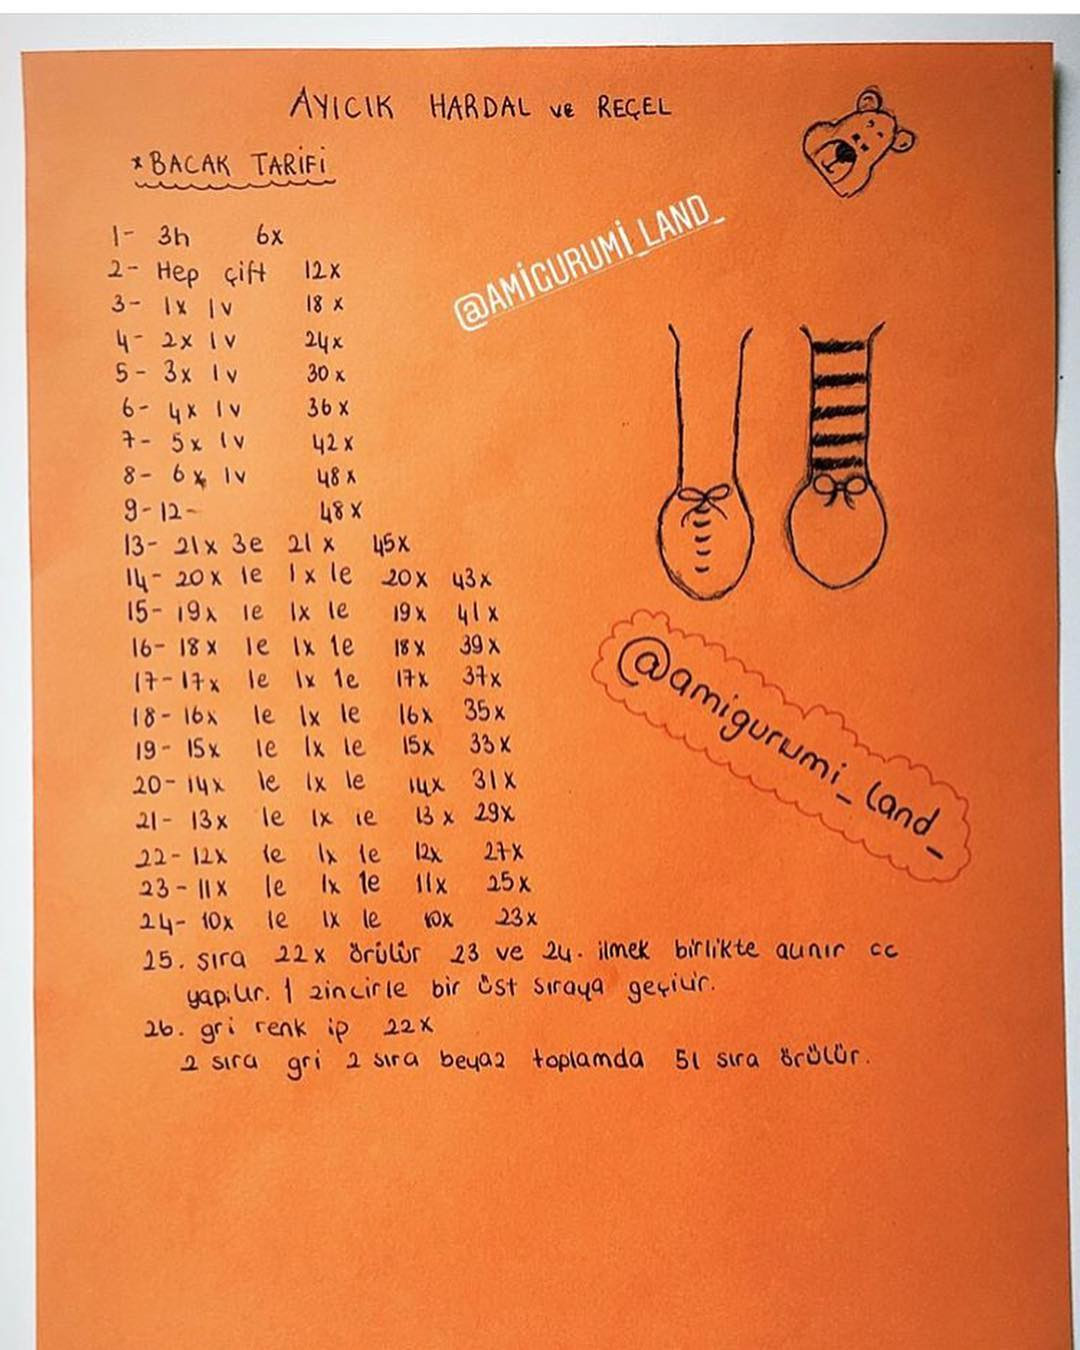 AYICIK HARDAL ve REÇEL
* BACAK TARİFİ
@AMİGURUMİ_LAND_
1- 3h 6x
2- Hep çift 12x
3- 1x 1v 18x
4- 2x 1v 24x
5- 3x 1v 30x
6- 4x 1v 36x
7- 5x 1v 42x
8- 6x 1v 48x
9-12- 48x
13- 21x 3e 21x 45x
14- 20x 1e 1x 1e 20x 43x
15- 19x 1e 1x 1e 19x 41x
16- 18x 1e 1x 1e 18x 39x
17- 17x 1e 1x 1e 17x 37x
18- 16x 1e 1x 1e 16x 35x
19- 15x 1e 1x 1e 15x 33x
20- 14x 1e 1x 1e 14x 31x
21- 13x 1e 1x 1e 13x 29x
22- 12x 1e 1x 1e 12x 27x
23- 11x 1e 1x 1e 11x 25x
24- 10x 1e 1x 1e 10x 23x
25. sıra 22x örülür 23 ve 24. ilmek birlikte alınır cc
yapılır. 1 zincirle bir üst sıraya geçilir.
26. gri renk ip 22x
2 sıra gri 2 sıra beyaz toplamda 51 sıra örülür.
@amigurumi_land_